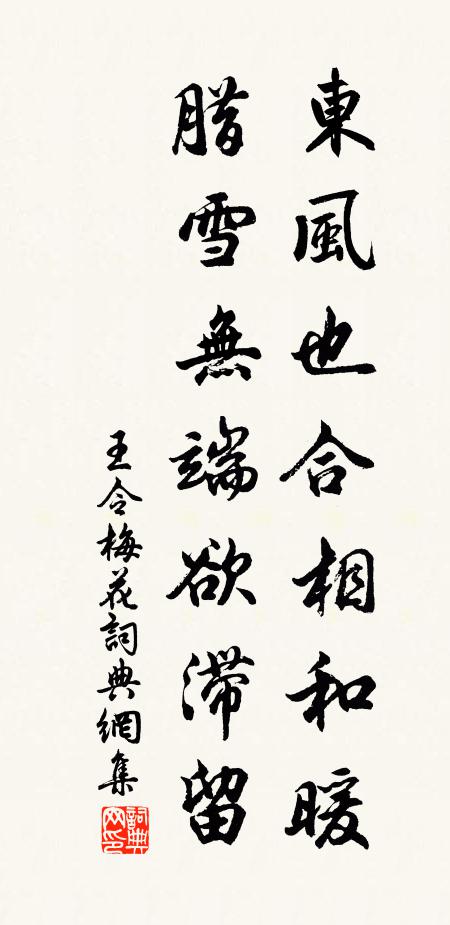 東風也合相和暖
腊雪無端欲滯留
王令梅花詞典網集
詞典网印